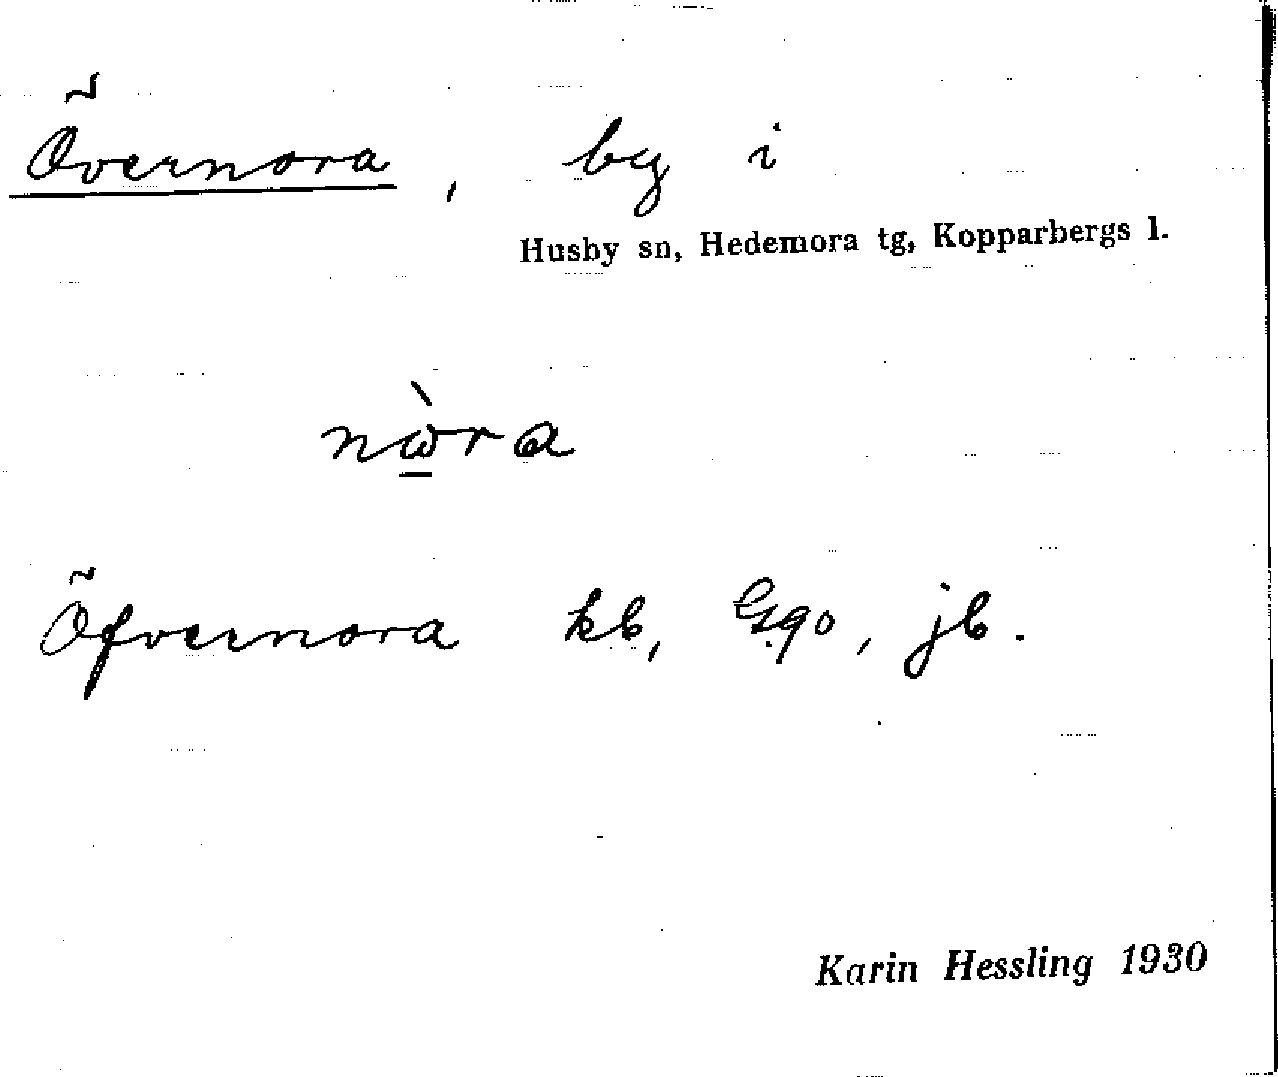 Övernora, by i
Husby sn, Hedemora tg, Kopparbergs l.
nὼ̲ra
Öfvernora kb, Gqo, jb.
Karin Hessling 1930